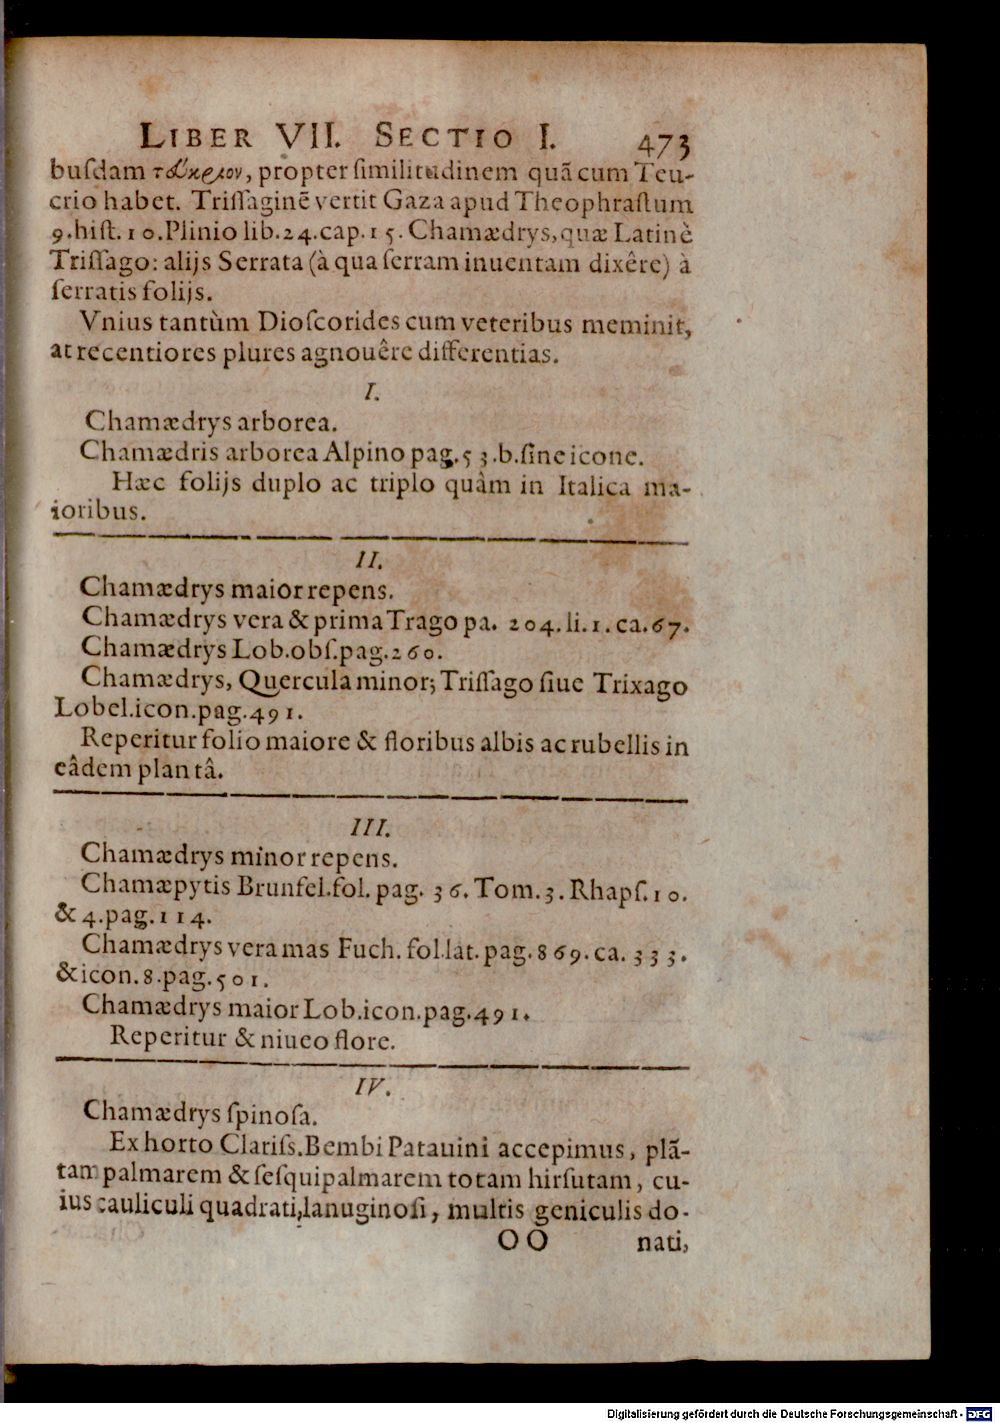 LIBER VII. SECTIO I. 473
buſdam τεύκριον, propter ſimilitudinem quã cum Teu-
crio habet. Triſſaginẽ vertit Gaza apud Theophraſtum
9.hiſt.10.Plinio lib.24.cap.15. Chamædrys, quæ Latinè
Triſſago: alijs Serrata (à qua ſerram inuentam dixêre) à
ſerratis folijs.
Vnius tantùm Dioſcorides cum veteribus meminit,
at recentiores plures agnouêre differentias.
I.
Chamædrys arborea.
Chamædris arborea Alpino pag.53.b.ſine icone.
Hæc folijs duplo ac triplo quàm in Italica ma-
ioribus.
II.
Chamædrys maior repens.
Chamædrys vera & prima Trago pa. 204.li.1.ca.67.
Chamædrys Lob.obſ.pag.260.
Chamædrys, Quercula minor; Triſſago ſiue Trixago
Lobel.icon.pag.491.
Reperitur folio maiore & floribus albis ac rubellis in
eâdem plantâ.
III.
Chamædrys minor repens.
Chamæpytis Brunfel.fol. pag. 36. Tom.3. Rhapſ.10.
& 4.pag.114.
Chamædrys vera mas Fuch. fol.lat. pag.869.ca.333.
& icon.8.pag.501.
Chamædrys maior Lob.icon.pag.491.
Reperitur & niueo flore.
IV.
Chamædrys ſpinoſa.
Ex horto Clariſs.Bembi Patauini accepimus, plã-
tam palmarem & ſeſquipalmarem totam hirſutam, cu-
ius cauliculi quadrati, lanuginoſi, multis geniculis do-
OO nati,
Digitalisierung gefördert durch die Deutsche Forschungsgemeinschaft - DFG